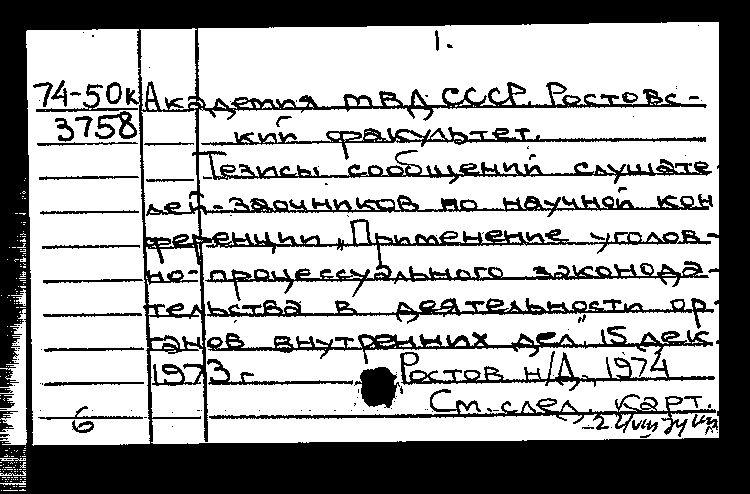 1.
74-50к Академия МВД СССР. Ростовс-
3758 кий факультет.
Тезисы сообщений слушате
лей-заочников по научной кон
ференции „Применение уголов-
но-процессуального законода-
тельства в деятельности ор-
ганов внутренних дел" 15 дек.
1973 г Ростов н/Д., 1974
См. след. карт.
6